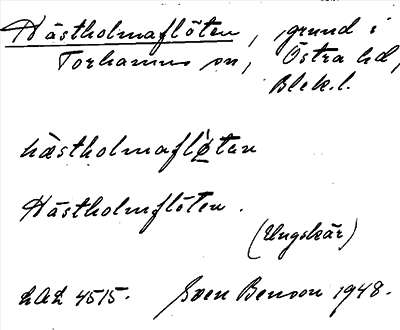 Hästholmaflöten, grund i
Torhamns sn, Östra hd,
Blek.l.
hæstholmaflǿtan
Hästholmflöten.
(Ungskär)
LAL 4515. Sven Benson 1948.